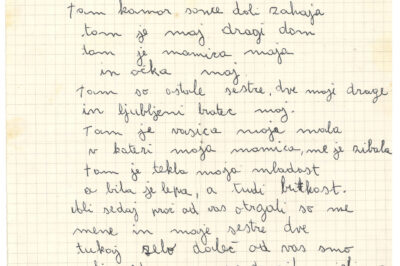 Tam kamor sonce doli zahaja
tam je moj dragi dom
tam je mamica moja
in očka moj
Tam so ostale sestre, dve moji drage
in ljubljeni bratec moj.
Tam je vasica moja mala
v kateri moja mamica, me je zibala
Tam je tekla moja mladost
a bila je lepa, a tudi britkost.
Ali sedaj proč od vas otrgali so me
mene in moje sestre dve
tukaj zelo daleč od vas smo